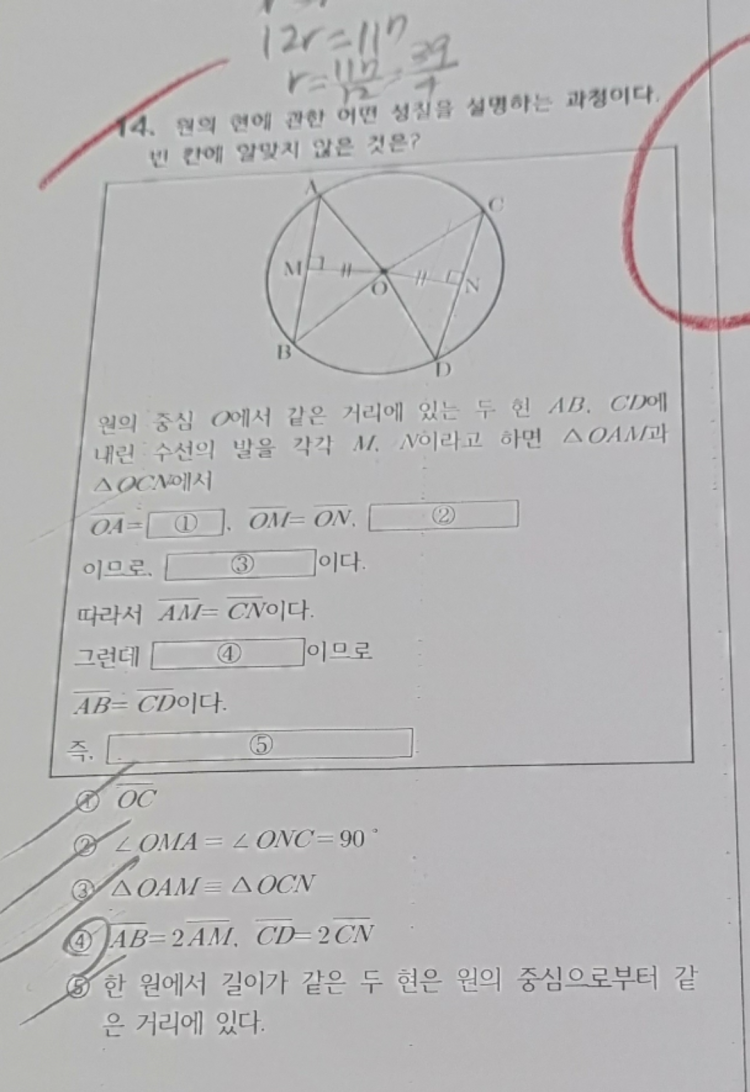 12r=117
r=117/12=39/4
14. 원의 현에 관한 어떤 성질을 설명하는 과정이다.
빈 칸에 알맞지 않은 것은?
A
C
M
O
N
B
D
원의 중심 O에서 같은 거리에 있는 두 현 AB, CD에
내린 수선의 발을 각각 M, N이라고 하면 △OAM과
△OCN에서
OA= ① , OM=ON, ②
이므로, ③ 이다.
따라서 AM=CN이다.
그런데 ④ 이므로
AB=CD이다.
즉, ⑤
① OC
② ∠OMA=∠ONC=90°
③ △OAM≡△OCN
④ AB=2AM, CD=2CN
⑤ 한 원에서 길이가 같은 두 현은 원의 중심으로부터 같
은 거리에 있다.